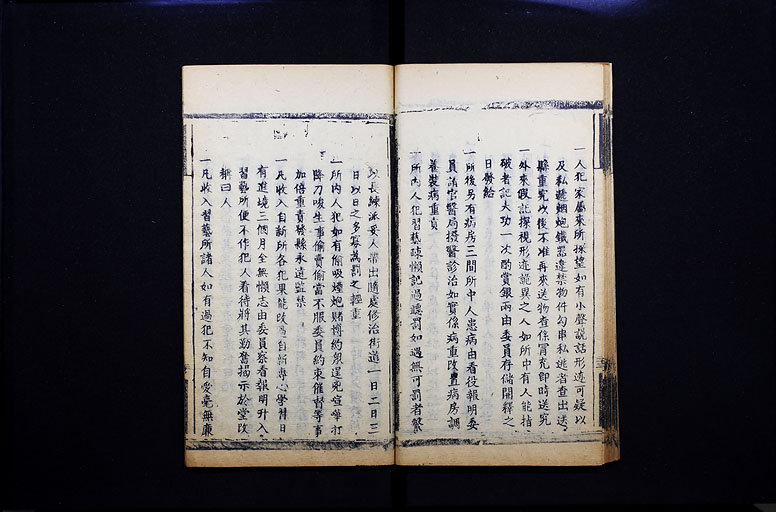 一人犯家屬來所探望如有小聲說話形迹可疑以
及私遞烟炮鐵器違禁物件勾串私逃者查出送
縣重究以後不准再來送物查係冒充即時送究
一外來假託探視形迹詭異之人如所中有人能指
破者記大功一次酌賞銀兩由委員存儲開釋之
日發給
一所後另有病房三間所中人患病由看役報明委
員請官醫局撥醫診治如實係病重改置病房調
養裝病重責
一所內人犯習藝疎懶記過議罰如遇無可罰者繫
以長練派妥人帶出隨處修治街道一日二日三
日以日之多寡為罰之輕重
一所內人犯如有偷吸煙炮賭博約衆逞兇喧嘩打
降刀唆生事偷賣偷當不服委員約束催督等事
加倍重責發縣永遠監禁
一凡收入自新所各犯果能改過自新專心學習日
有進境三個月全無懶志由委員察看報明升入
習藝所便不作犯人看待將其勤奮揭示於堂改
稱曰人
一凡收入習藝所諸人如有過犯不知自愛毫無廉